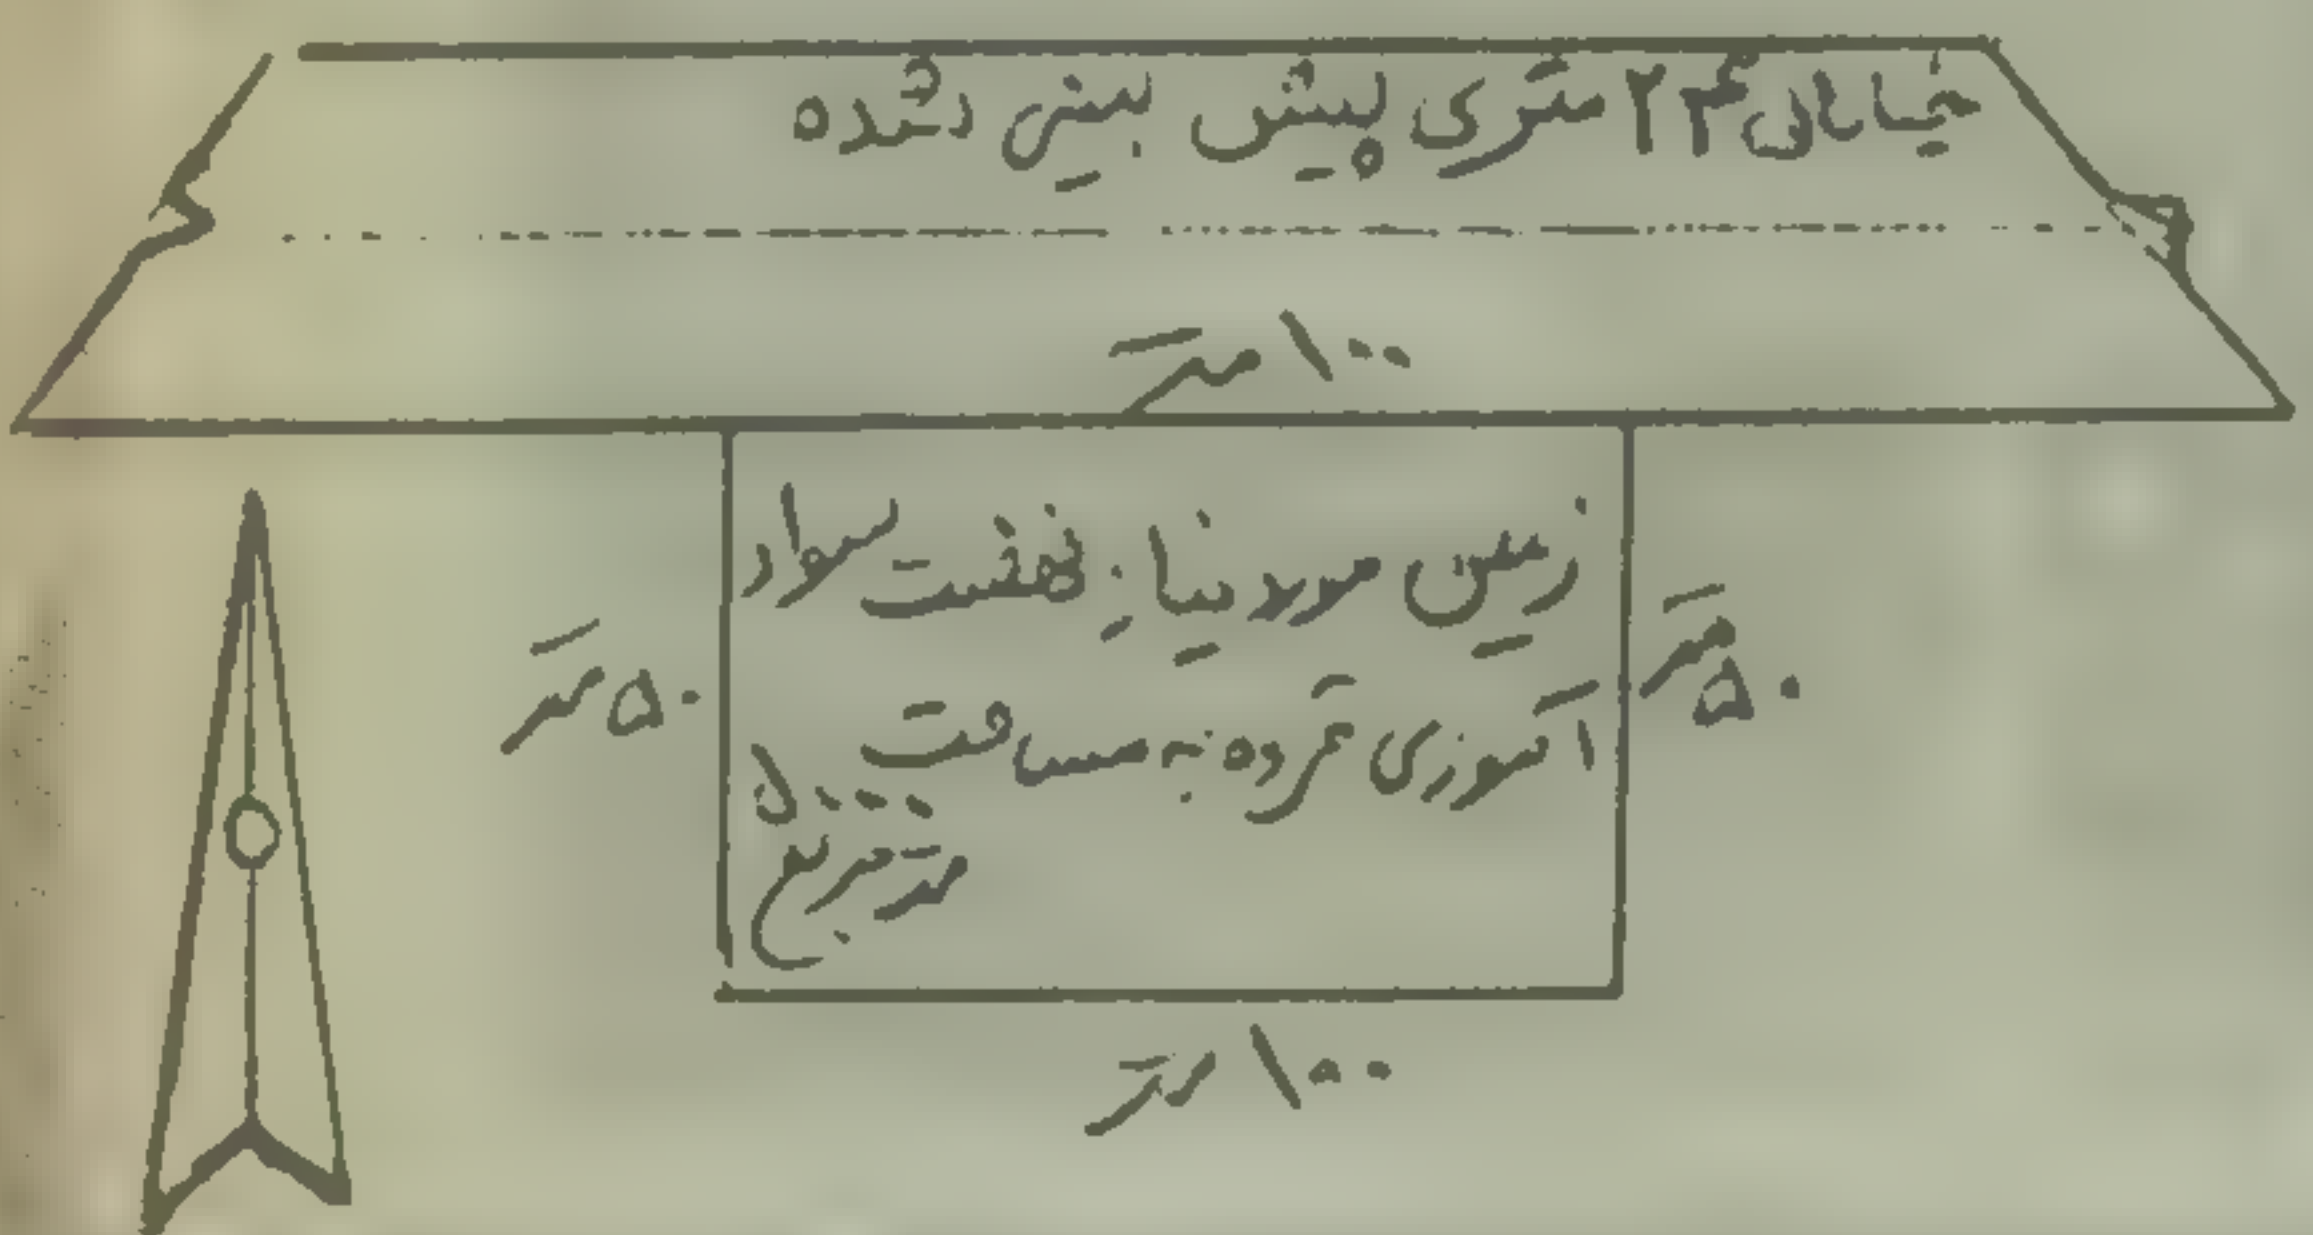 خیابان ۲۴ متری پیش بینی شده
۱۰۰ متر
زمین مورد نیاز نهضت سواد
آموزی قروه به مسافت
۵۰۰۰
متر مربع
۵۰ متر
۵۰ متر
۱۰۰ متر